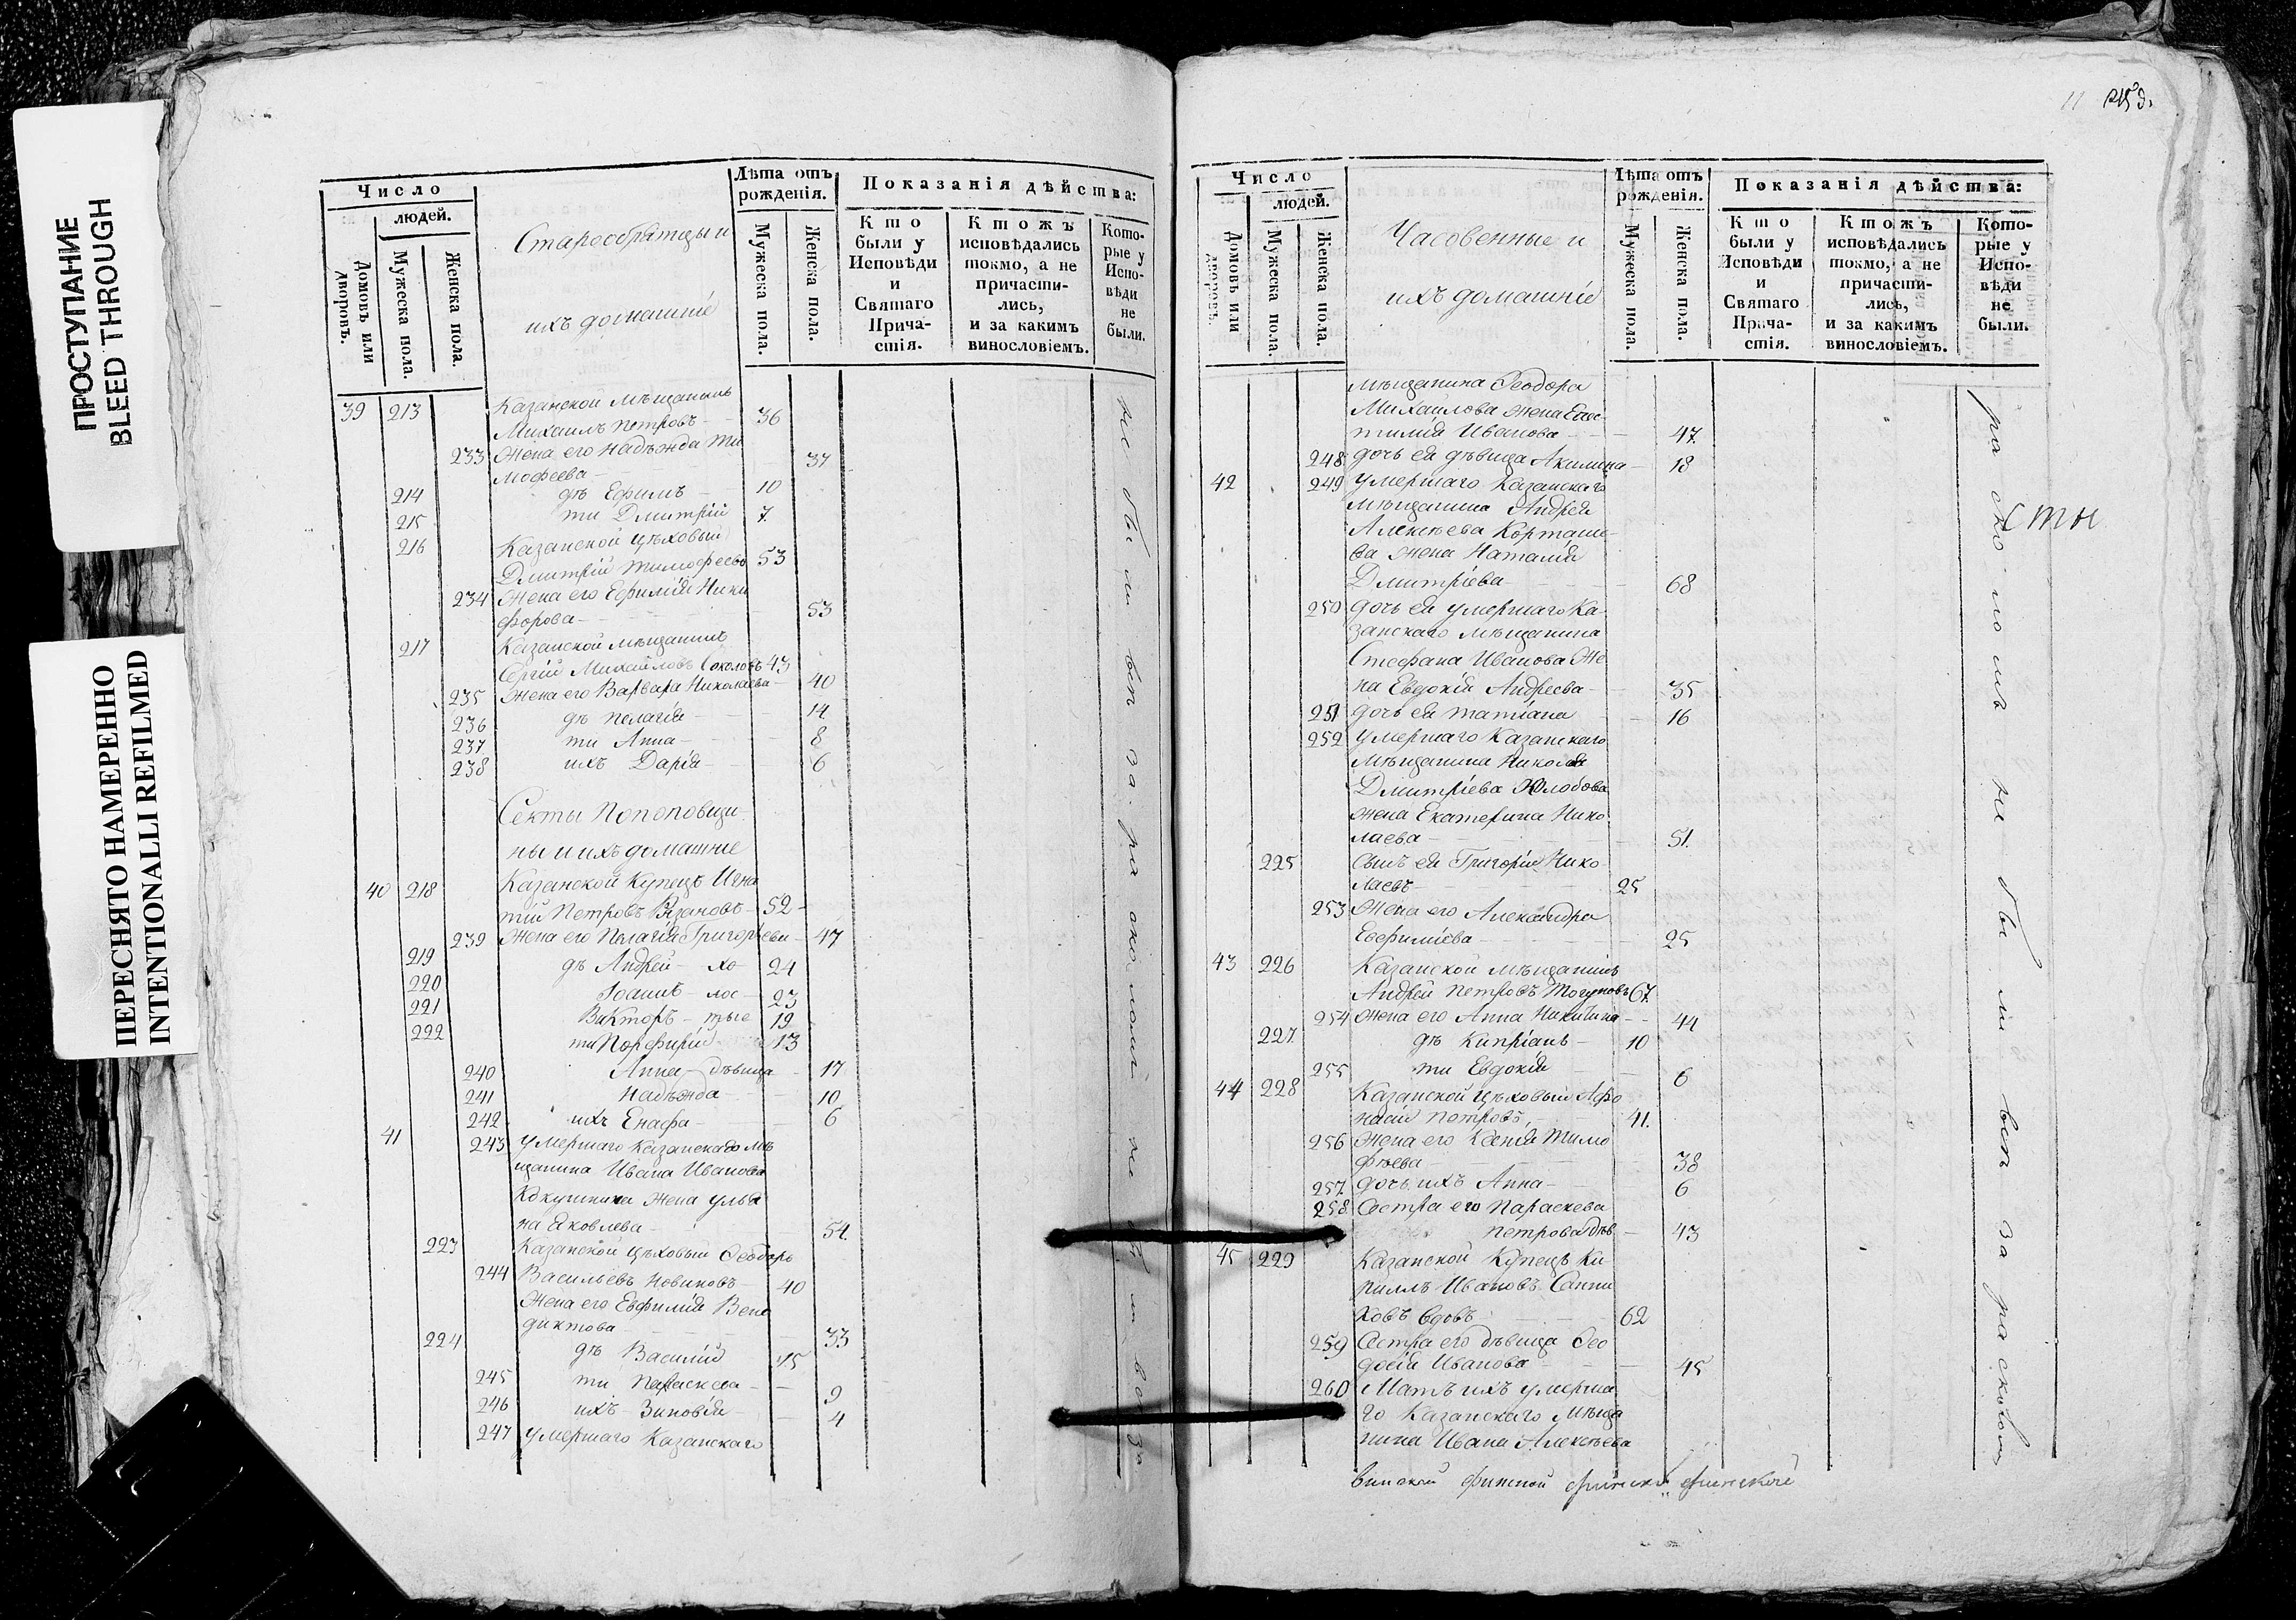 ПРОСТУПАНИЕ
BLEED THROUGH
ПЕРЕСНЯТО НАМЕРЕННО
INTENTIONALLI REFILMED
Число
людей.
Домовъ или дворовъ.
Мужеска пола.
Женска пола.
Старообрятцы и
ихъ домашніе
Лѣта отъ рожденія.
Мужеска пола.
Женска пола.
Показанія дѣйства:
Кто были у Исповѣди и Святаго Прича-стія.
Ктожъ исповѣдались токмо, а не причасти-лись, и за какимъ винословіемъ.
Кото-рые у Испо-вѣди не были.
39 213 Казанской мѣщанинъ
Михаилъ Петровъ 36
233 Жена его Надѣжда Ти
мофеева 37
214 дѣ Ефимъ 10
215 ти Дмитрій 7
216 Казанской цѣховый
Дмитрій Тимофеевъ 53
234 Жена его Ефимія Ники
форова 53
217 Казанской мѣщанинъ
Сергій Михайловъ Соколовъ 43
235 Жена его Варвара Николаева 40
236 дѣ Пелагія 14
237 ти Анна 8
238 ихъ Дарія 6
Секты Попоповщи
ны и ихъ домашніе
40 218 Казанской Купецъ Игна
тій Петровъ Рязановъ 52
239 Жена его Пелагія Григорьева 47
219 дѣ Андрей хо 24
220 Іоаннъ лос 23
221 Викторъ тые 19
222 ти Порфирій 13
240 Анна дѣвица 17
241 Надѣжда 10
242 ихъ Енафа 6
41 243 Умершаго Казанскаго мѣ
щанина Ивана Иванова
Кокушкина жена Улья
на Яковлева 54
223 Казанской цѣховый Ѳеодоръ
244 Васильевъ Новиковъ 40
Жена его Евфимія Вене
диктова 33
224 дѣ Василій 15
245 ти Параскева 9
246 ихъ Зиновія 4
247 Умершаго Казанскаго
не были вси за расколом
Число
людей.
Домовъ или дворовъ.
Мужеска пола.
Женска пола.
Часовенные и
ихъ домашніе
Лѣта отъ рожденія.
Мужеска пола.
Женска пола.
Показанія дѣйства:
Кто были у Исповѣди и Святаго Прича-стія.
Ктожъ исповѣдались токмо, а не причасти-лись, и за какимъ винословіемъ.
Кото-рые у Испо-вѣди не были.
мѣщанина Ѳеодора
Михайлова жена
Иванова 47
248 дочь ея дѣвица Акилина 18
42 249 Умершаго Казанскаго
мѣщанина Андрея
Алексѣева Корташе
ва жена Наталія
Дмитріева 68
250 дочь ея умершаго Ка
занскаго мѣщанина
Стефана Иванова Же
на Евдокія Андреева 35
251 дочь ея Татіана 16
252 Умершаго Казанскаго
мѣщанина Николая
Дмитріева
жена Екатерина Нико
лаева 51
225 сынъ ея Григорій Нико
лаевъ 25
253 Жена его Александра
Евфиміева 25
43 226 Казанской мѣщанинъ
Андрей Петровъ 67
254 Жена его Анна Никитина 44
227 дѣ Кипріанъ 10
255 ти Евдокія 6
44 228 Казанской цѣховый Афо
насій Петровъ 41
256 Жена его Ксенія Тимо
фѣева 38
257 дочь ихъ Анна 6
258 Сестра его Параскева
Петрова дѣв 43
45 229 Казанской Купецъ Ки
риллъ Ивановъ
вдовъ 62
259 Сестра его дѣвица Ѳео
досія Иванова 45
260 Мать ихъ умерша
го Казанскаго мѣща
нина Ивана Алексѣева
расколомъ не были вси за расколом